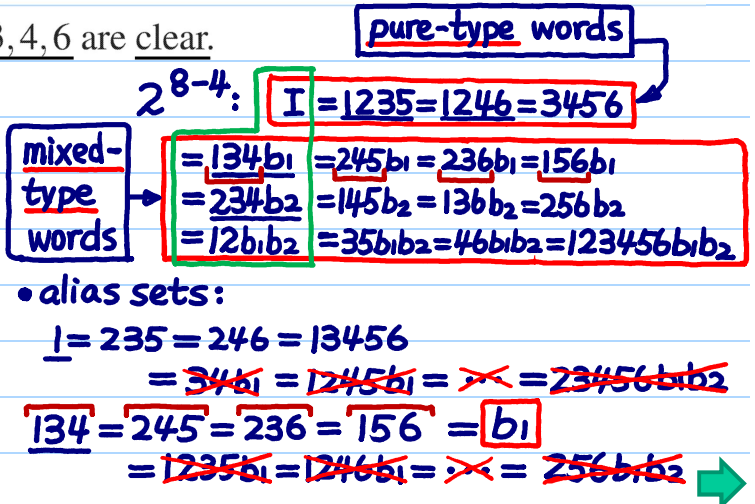 3, 4, 6 are clear.
pure-type words
2^{8-4}: I = 1235 = 1246 = 3456
mixed-type words
= 134b₁ = 245b₁ = 236b₁ = 156b₁
= 234b₂ = 145b₂ = 136b₂ = 256b₂
= 12b₁b₂ = 35b₁b₂ = 46b₁b₂ = 123456b₁b₂
• alias sets:
1 = 235 = 246 = 13456
= 34b₁ = 1245b₁ = ... = 23456b₁b₂
134 = 245 = 236 = 156 = b₁
= 1235b₁ = 1246b₁ = ... = 256b₁b₂